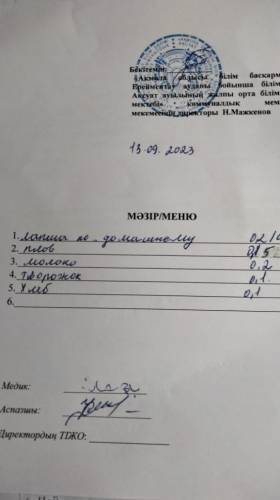 Бекітемін:
«Ақмола облысы білім басқарм
Ерейментау ауданы бойынша білім
Ақсуат ауылының жалпы орта білім
мектебі» коммуналдық мем
мекемесінің директоры Н.Мажкенов
13.09.2023
МӘЗІР/МЕНЮ
1. лапша по-домашнему 0,2/
2. плов
3. молоко 0.2
4. творожок 0,1.
5. Хлеб 0,1
6.
Медик:
Аспазшы:
Директордың ТІЖО: